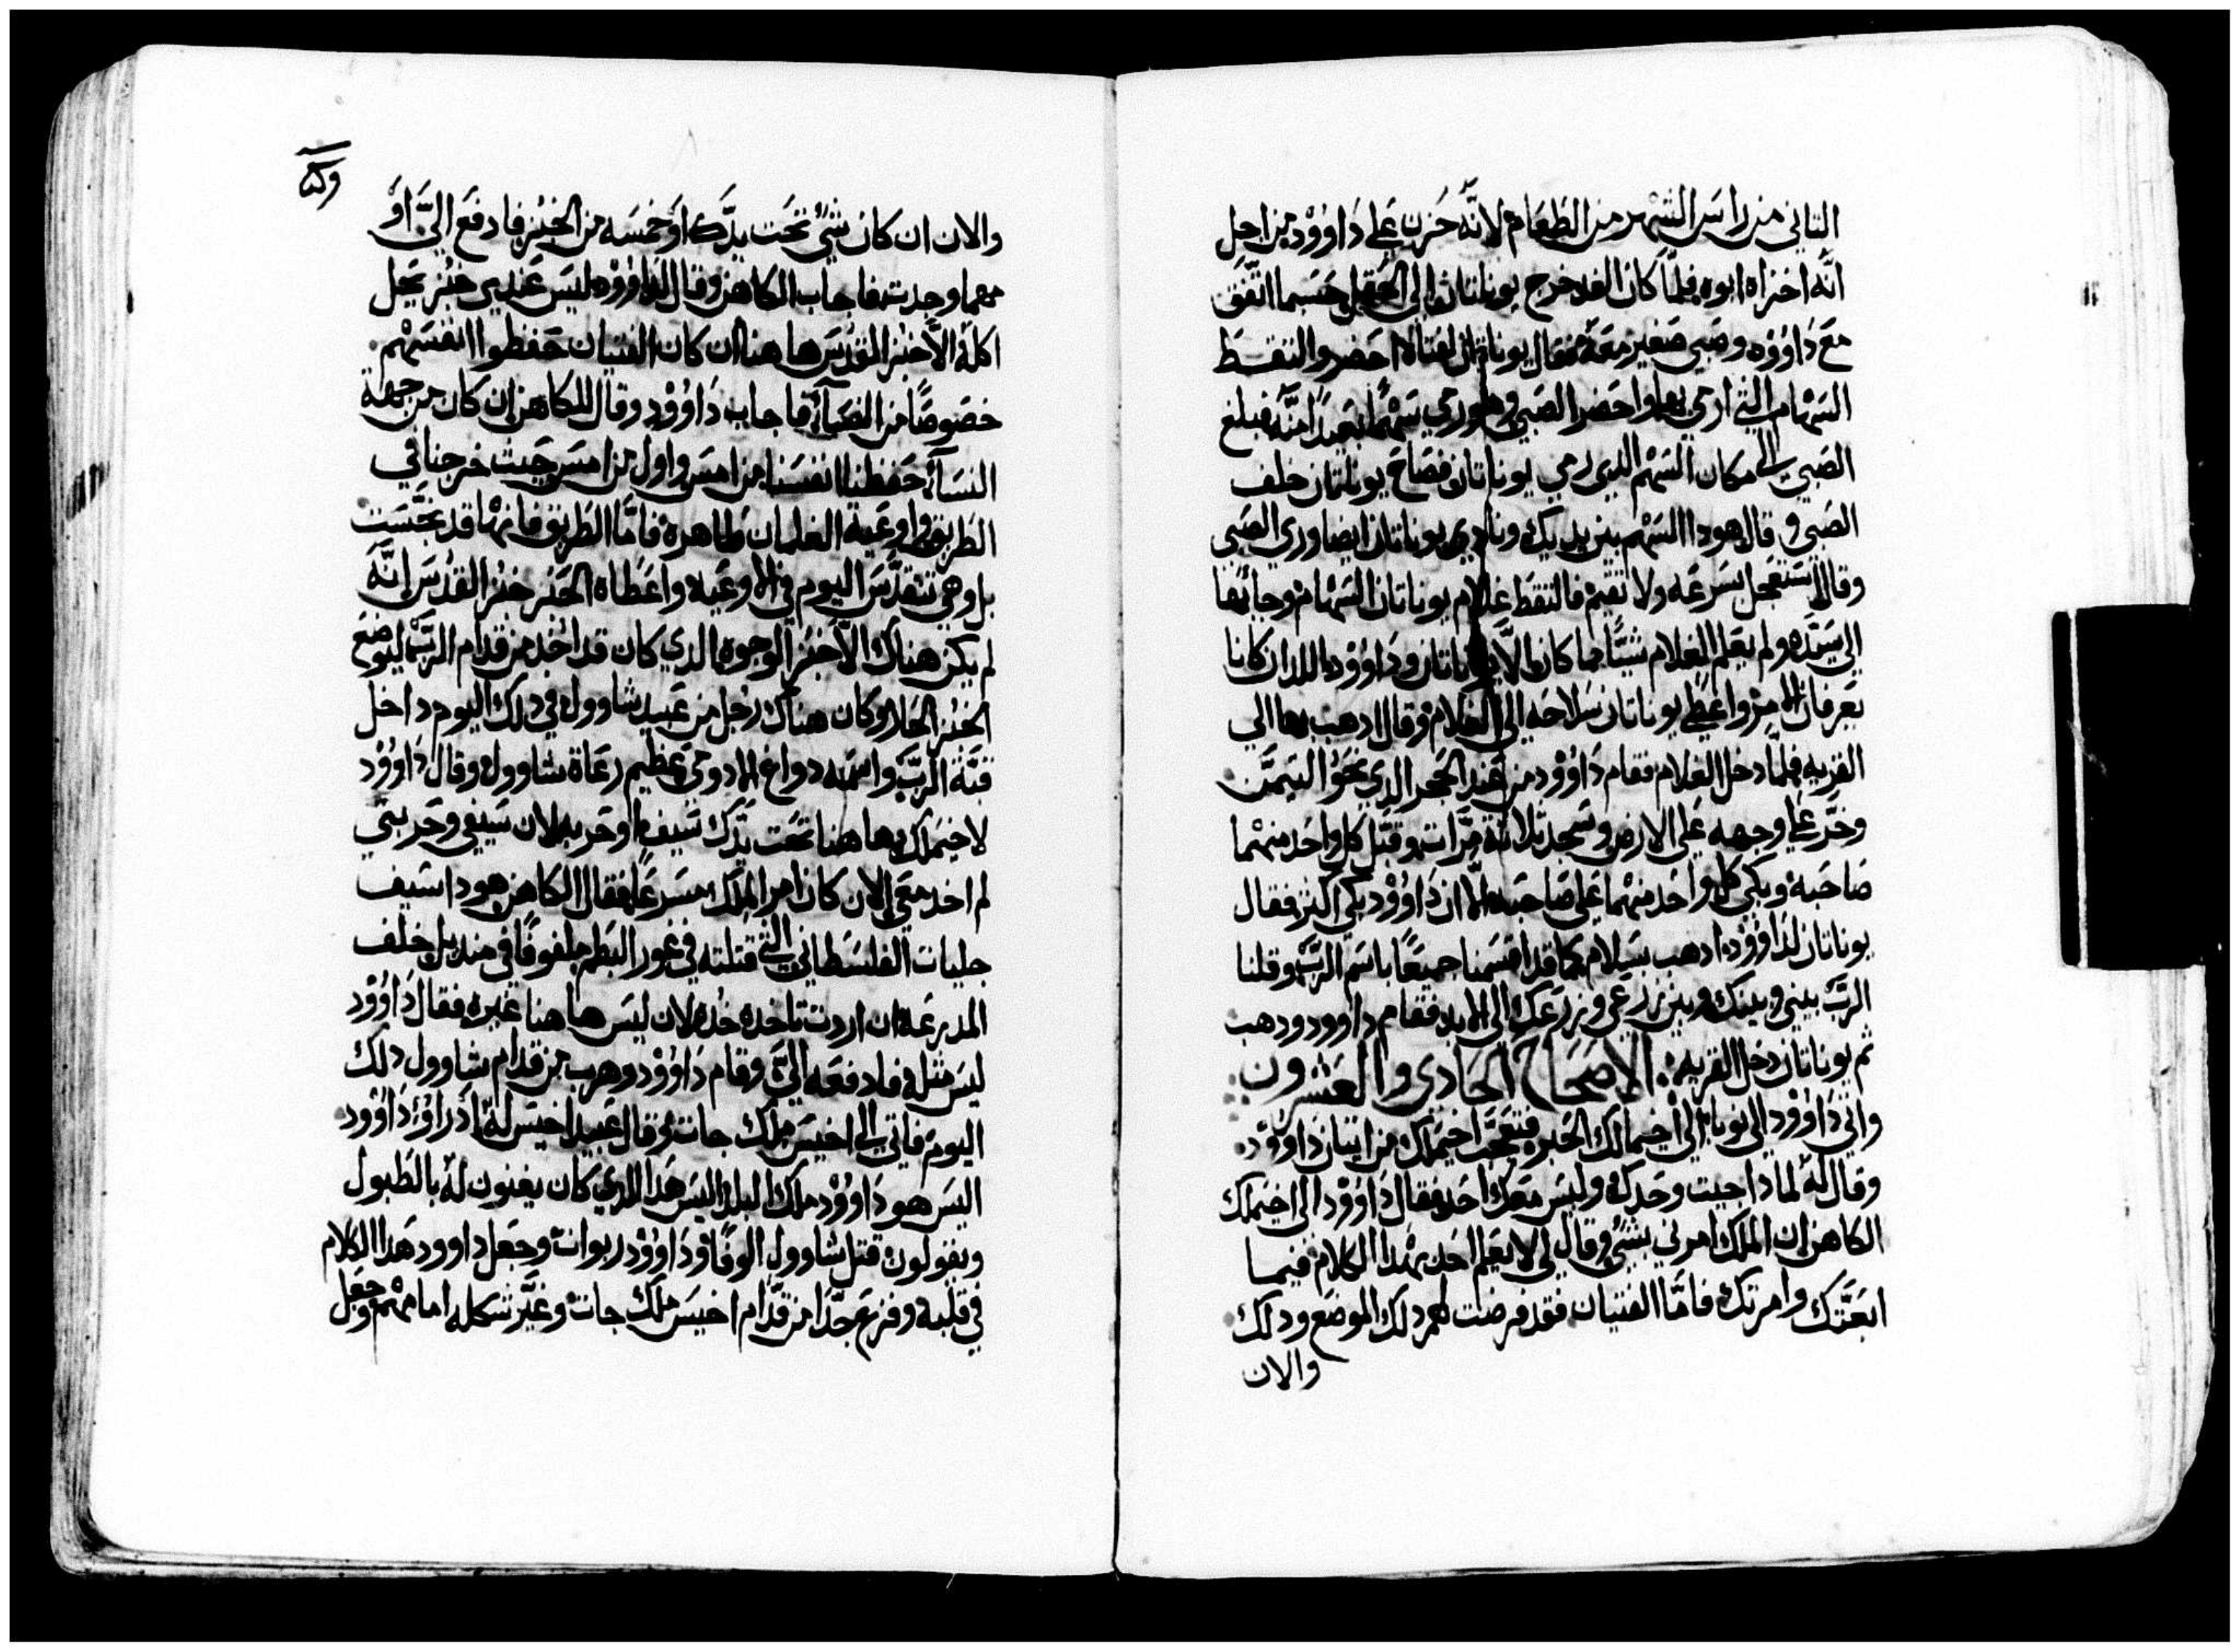 الثاني من راس الشهر من الطعام لانه حزن على داوود من اجل
انه اخزاه ابوه فلما كان الغد خرج يوناتان الى الحقل حسبما اتفق
مع داوود وصبي صغير معه فقال يوناتان لفتاه احضر والتقط
السهام التي ارمي بها واحضر الصبي وهو رمي سهما بعيدا منه فبلغ
الصبي الى مكان السهم الذي رمي يوناتان فصاح يوناتان خلف
الصبي وقال هودا السهم بين يديك ونادي يوناتان ايضا وري الصبي
وقال استعجل بسرعه ولا تقيم فالتقط غلام يوناتان السهام وجا بها
الي سيده ولم يعلم الغلام شيا مما كان الا يوناتان وداوود اللدان كانا
يعرفان الامر واعطي يوناتان سلاحه الي الغلام وقال ادهب بها الي
القريه فلما دخل الغلام فقام داوود من عند الحجر الدي نحو التيمن
وخر على وجهه على الارض وسجد ثلاثة مرات وقبل كل واحد منهما
صاحبه وبكي كل واحد منهما على صاحبه الا ان داوود بكي اكثر فقال
يوناتان لداوود ادهب بسلام كما قد اقسمنا جميعا باسم الرب وقلنا
الرب بيني وبينك وبين زرعي وزرعك الى الابد فقام داوود ودهب
ثم يوناتان دخل القريه الاصحاح الحادي والعشرون
واتي داوود الى نوبا الي اخيمالك الحبر فتعجب اخيملك من اتيان داوود
وقال له لمادا جيت وحدك وليس معك احد فقال داوود الى اخيملك
الكاهن ان الملك امرني بشي وقال لي لا يعلم احد بهدا الكلام فيما
ابعثك وامرتك فاما الفتيان فقد فرضت لهم دلك الموضع ودلك
والان
وكه
والان ان كان شي تحت يدك او خمسه من الخبز فادفع الي او
مهما وجدت فاجاب الكاهن وقال لداوود ليس عندي خبز يحل
اكله الا خبز القدس هاهنا ان كان الفتيان حفظوا انفسهم
خصوصا من النساء فاجاب داوود وقال للكاهن ان كان من جهة
النساء حفظنا انفسنا من امس واول من امس حيت خرجنا في
الطريق واوعية الغلمان طاهرة فاما الطريق فانها قد نجست
بل وهي تتقدس اليوم في الاوعيه واعطاه الحبر خبز القدس انه
لم يكن هناك الا خبز الوجوه الدي كان قد اخد من قدام الرب ليوضع
الخبز الحار وكان هناك رجل من عبيد شاوول في دلك اليوم داخل
قبة الرب واسمه دواغ الادومي عظيم رعاة شاوول وقال داوود
لاخيملك هاهنا تحت يدك سيف او حربه لان سيفي وحربتي
لم اخد معي لان كان امر الملك مسرعا فقال الكاهن هودا سيف
جليات الفلسطاني التي قتلته في غور البطم ملفوفا في منديل خلف
المدرعة ان اردت تاخده خده لان ليس هاهنا غيره فقال داوود
ليس مثله فادفعه الي وقام داوود وهرب من قدام شاوول دلك
اليوم فاتي الى اخيس ملك جات وقال عبيد اخيس له اد راوا داوود
اليس هو داوود ملك البلد اليس هدا الدي كان يغنون له بالطبول
ويقولون قتل شاوول الوفا وداوود ربوات وجعل داوود هدا الكلام
في قلبه وفزع جدا من قدام اخيس ملك جات وغير شكله امامهم وجعل